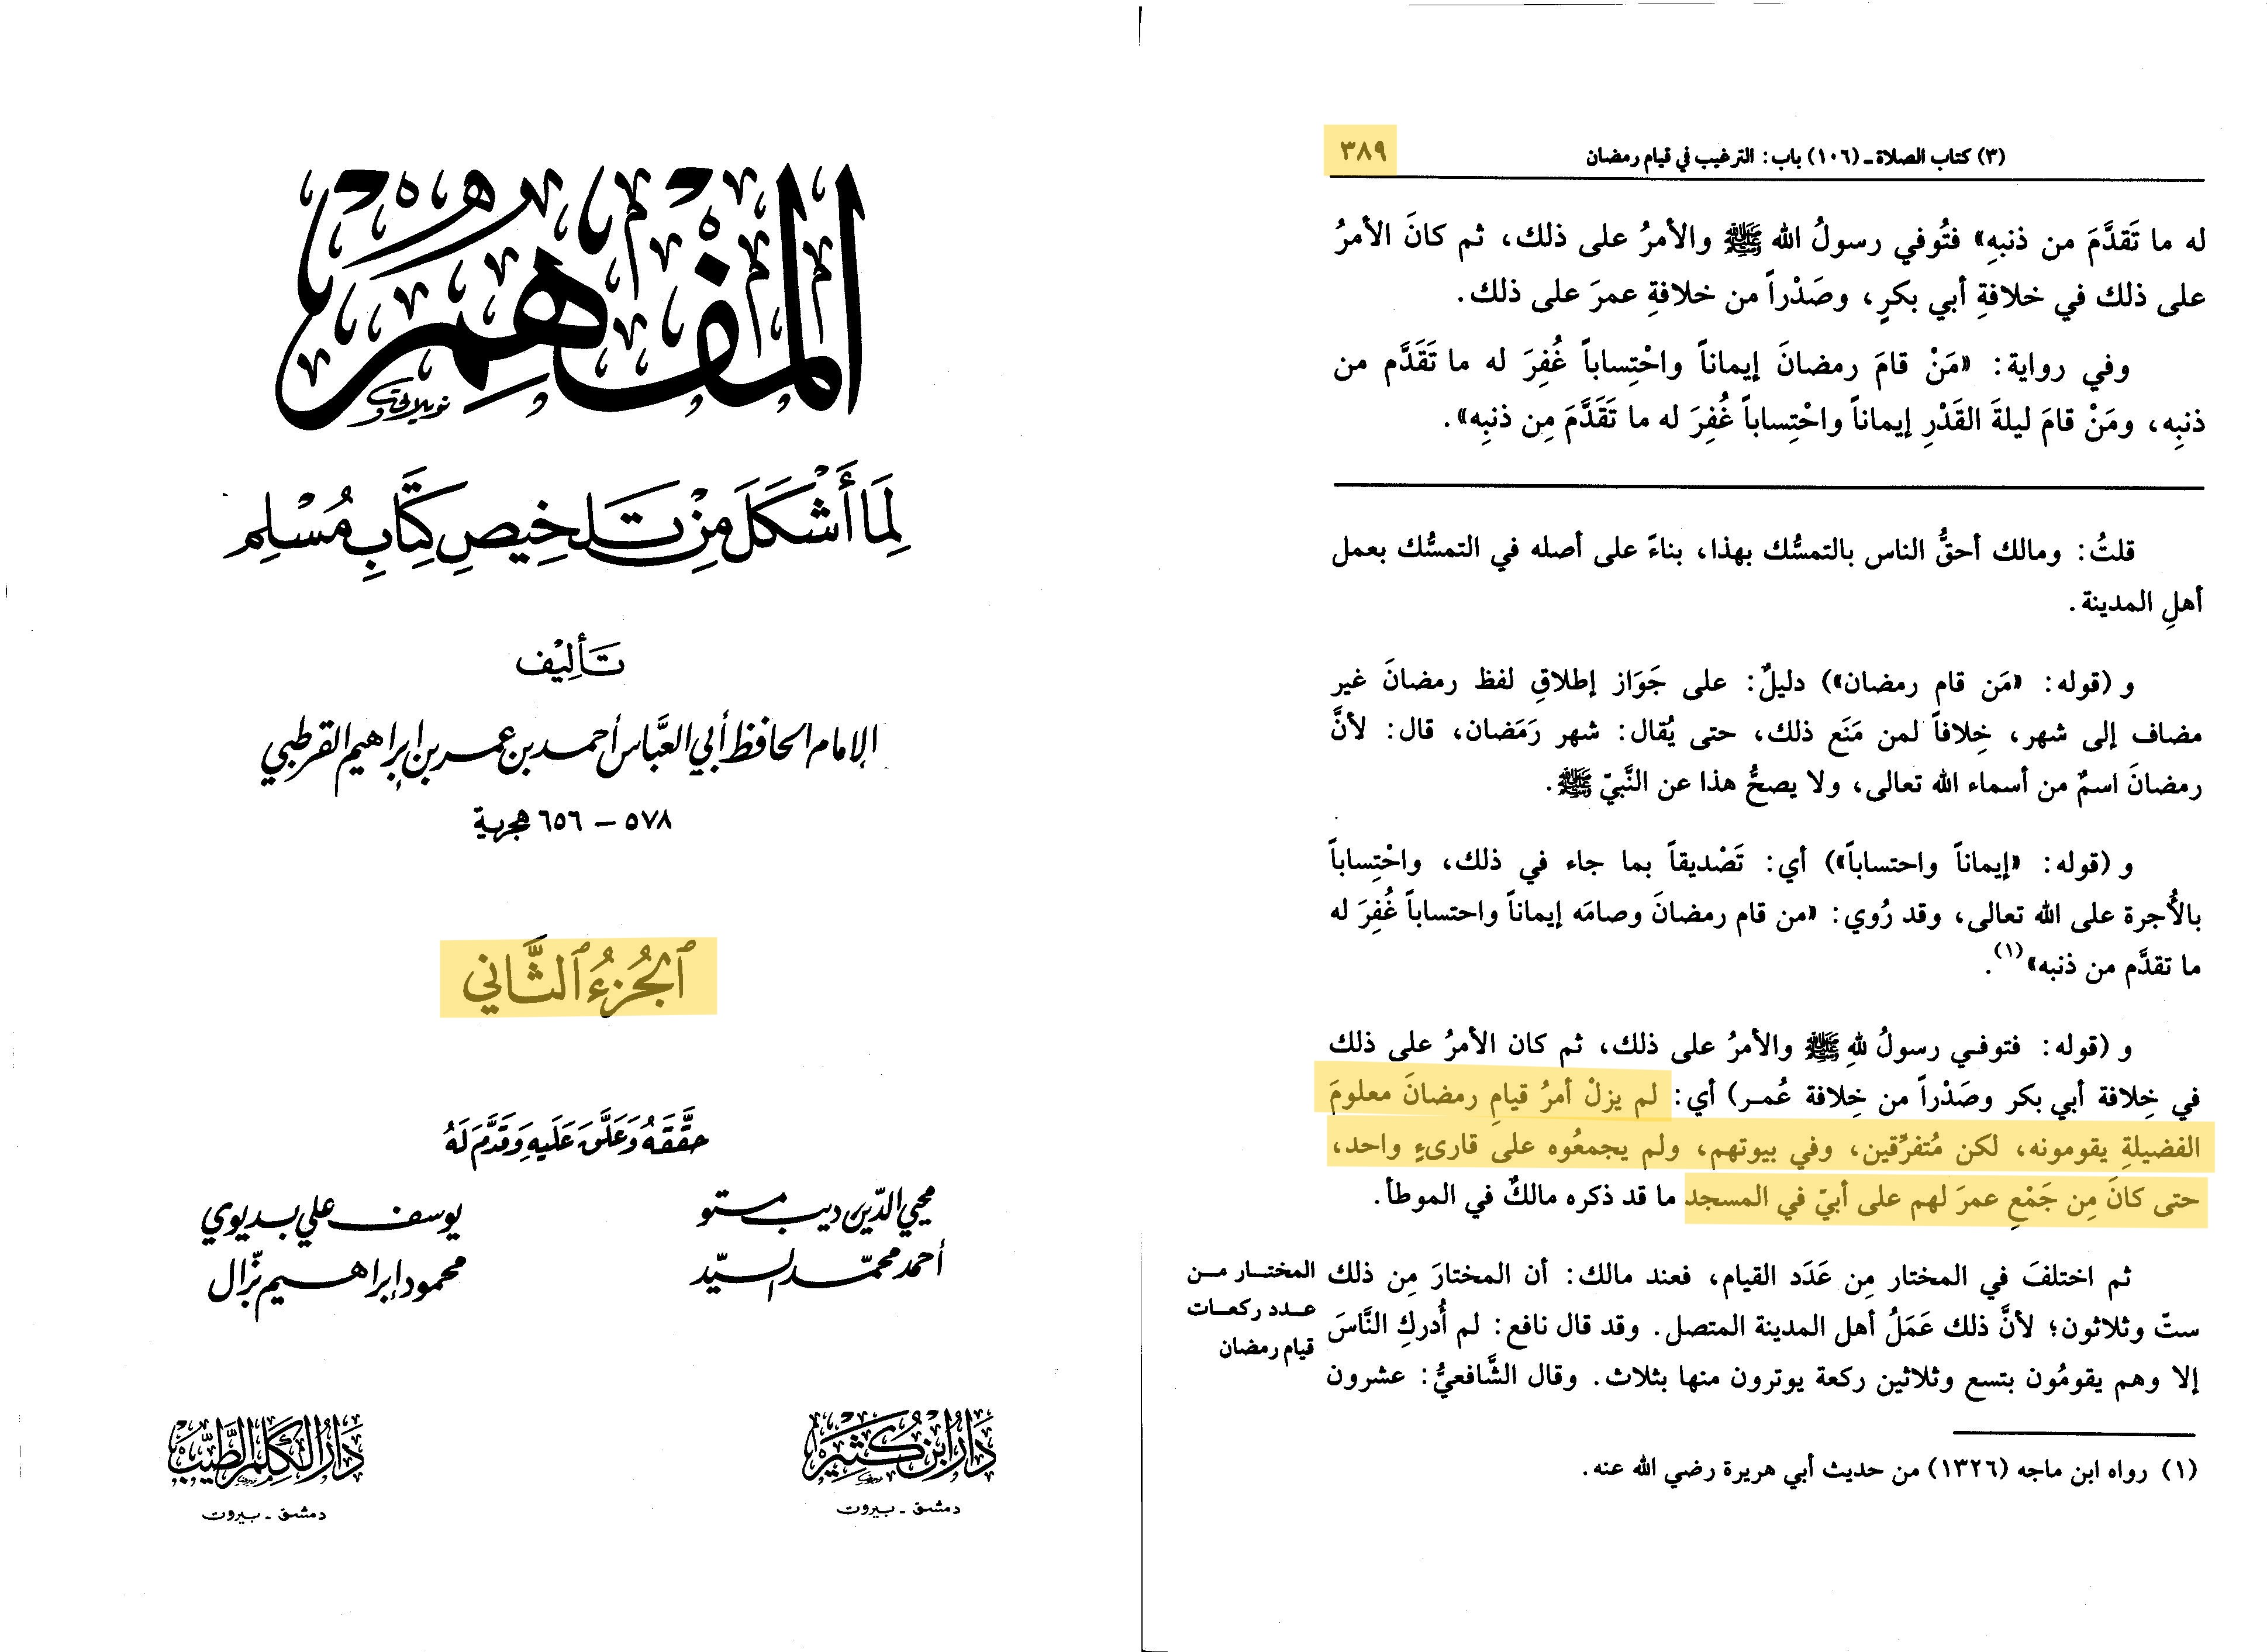 المفهم
لِمَا أَشْكَلَ مِنْ تَلخِيصِ كِتَابِ مُسْلِم
تَأليف
الإمام الحافظ أبي العبَّاس أحمد بن عمر بن إبراهيم القرطبي
٥٧٨ – ٦٥٦ هجرية
الجُزءُ الثَّاني
حقَّقَهُ وَعَلَّقَ عَلَيهِ وَقَدَّمَ لَهُ
محيي الدّين ديب مستو
يوسف علي بديوي
أحمد محمّد السيّد
محمود إبراهيم بزّال
دَارُ ابْن كَثِير
دمشق ـ بيروت
دَارُ الكَلِم الطَّيِّبْ
دمشق ـ بيروت
(٣) كتاب الصلاة ـ (١٠٦) باب: الترغيب في قيام رمضان
٣٨٩
له ما تَقدَّمَ من ذنبهِ» فتُوفي رسولُ الله ﷺ والأمرُ على ذلك، ثم كانَ الأمرُ
على ذلك في خلافةِ أبي بكرٍ، وصَدْراً من خلافةِ عمرَ على ذلك.
وفي رواية: «مَنْ قامَ رمضانَ إيماناً واحْتِساباً غُفِرَ له ما تَقَدَّم من
ذنبِه، ومَنْ قامَ ليلةَ القَدْرِ إيماناً واحْتِساباً غُفِرَ له ما تَقَدَّمَ مِن ذنبِه».
قلتُ: ومالك أحقُّ الناس بالتمسُّك بهذا، بناءً على أصله في التمسُّك بعمل
أهلِ المدينة.
و (قوله: «مَن قام رمضان») دليلٌ: على جَوَاز إطلاقِ لفظ رمضانَ غير
مضاف إلى شهر، خِلافاً لمن مَنَع ذلك، حتى يُقال: شهر رَمَضان، قال: لأنَّ
رمضانَ اسمٌ من أسماء الله تعالى، ولا يصحُّ هذا عن النَّبيّ ﷺ.
و (قوله: «إيماناً واحتساباً») أي: تَصْديقاً بما جاء في ذلك، واحْتِساباً
بالأُجرة على الله تعالى، وقد رُوي: «من قام رمضانَ وصامَه إيماناً واحتساباً غُفِرَ له
ما تقدَّم من ذنبه»(١).
و (قوله: فتوفي رسولُ للهِ ﷺ والأمرُ على ذلك، ثم كان الأمرُ على ذلك
في خِلافة أبي بكر وصَدْراً من خِلافة عُمر) أي: لم يزلْ أمرُ قيامِ رمضانَ معلومَ
الفضيلةِ يقومونه، لكن مُتفرِّقين، وفي بيوتهم، ولم يجمعُوه على قارىءٍ واحد،
حتى كانَ مِن جَمْعِ عمرَ لهم على أبيّ في المسجد ما قد ذكره مالكٌ في الموطأ.
المختار من
عدد ركعات
قيام رمضان
ثم اختلفَ في المختار مِن عَدَد القيام، فعند مالك: أن المختارَ مِن ذلك
ستّ وثلاثون؛ لأنَّ ذلك عَمَلُ أهل المدينة المتصل. وقد قال نافع: لم أُدركِ النَّاسَ
إلا وهم يقومُون بتسع وثلاثين ركعة يوترون منها بثلاث. وقال الشَّافعيُّ: عشرون
(١) رواه ابن ماجه (١٣٢٦) من حديث أبي هريرة رضي الله عنه.